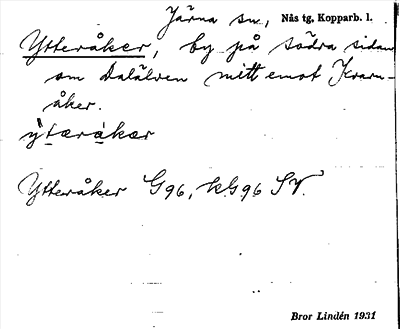 Järna sn, Nås tg, Kopparb. l.
Ytteråker, by på södra sidan
om Dalälven mitt emot Kvarn-
åker.
ỳtæràkær
Ytteråker G96, K.G.96 SV.
Bror Lindén 1931